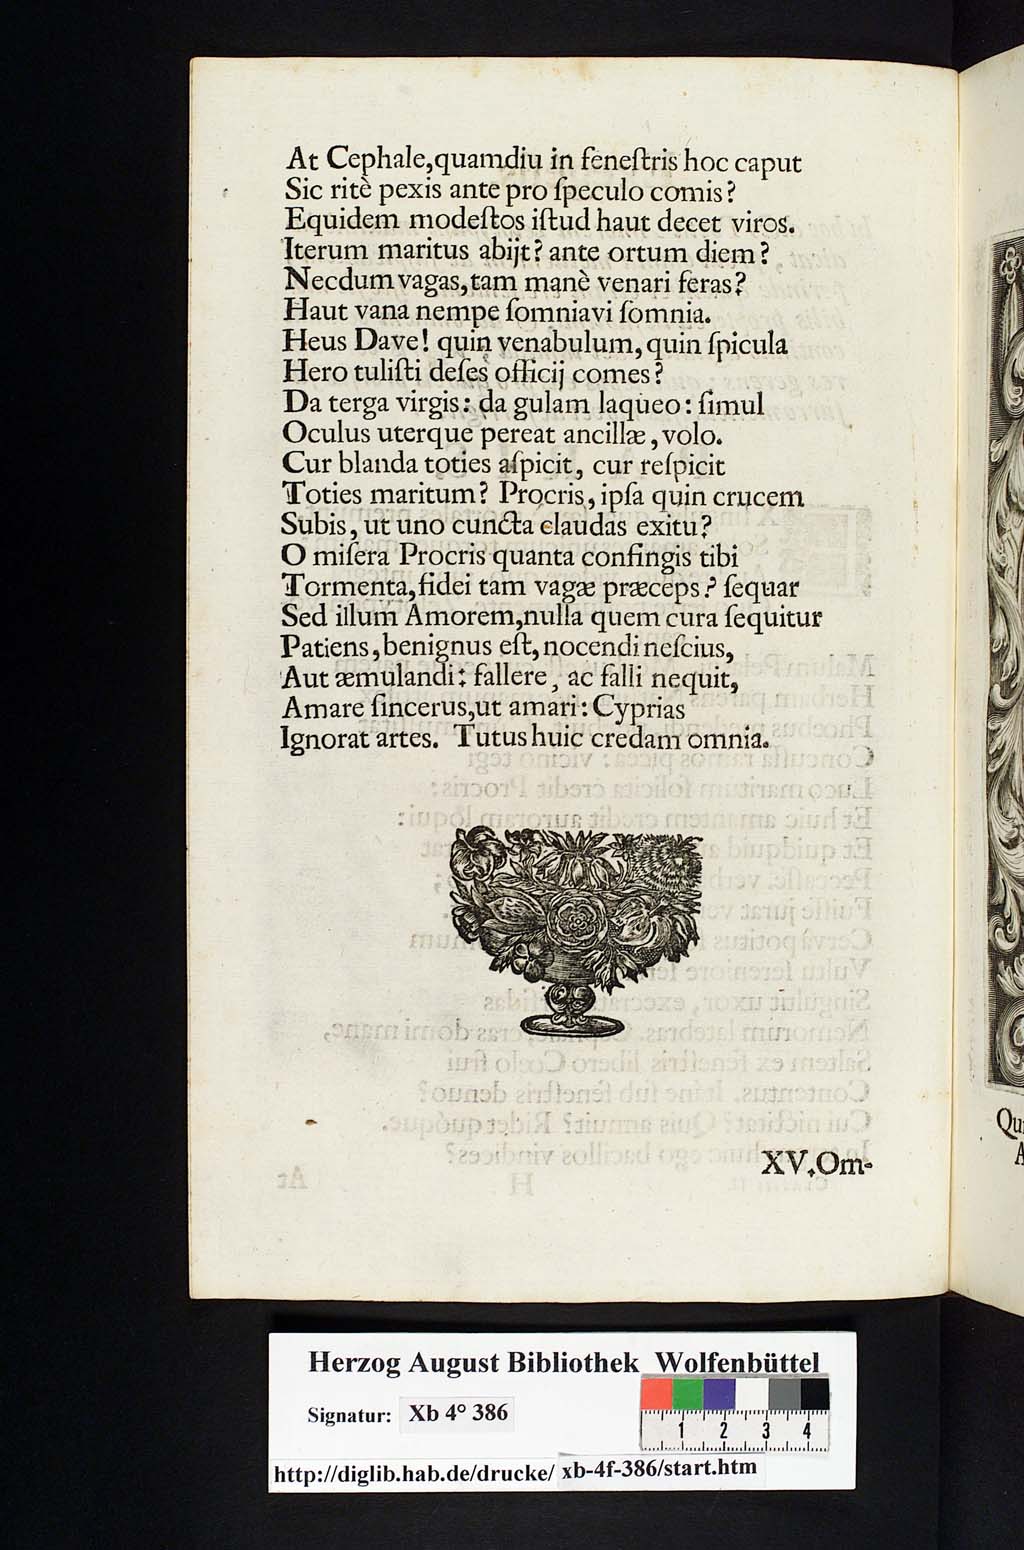 At Cephale,quamdiu in feneſtris hoc caput
Sic ritè pexis ante pro ſpeculo comis?
Equidem modeſtos iſtud haut decet viros.
Iterum maritus abijt? ante ortum diem?
Necdum vagas,tam manè venari feras?
Haut vana nempe ſomniavi ſomnia.
Heus Dave! quin venabulum,quin ſpicula
Hero tuliſti deſes officij comes?
Da terga virgis: da gulam laqueo: ſimul
Oculus uterque pereat ancillæ, volo.
Cur blanda toties aſpicit, cur reſpicit
Toties maritum? Procris, ipſa quin crucem
Subis, ut uno cuncta claudas exitu?
O miſera Procris quanta confingis tibi
Tormenta,fidei tam vagæ præceps? ſequar
Sed illum Amorem,nulla quem cura ſequitur
Patiens,benignus eſt, nocendi neſcius,
Aut æmulandi: fallere, ac falli nequit,
Amare ſincerus,ut amari: Cyprias
Ignorat artes. Tutus huic credam omnia.
XV.Om-
Qu
A
Herzog August Bibliothek Wolfenbüttel
Signatur: Xb 4° 386
1 2 3 4
http://diglib.hab.de/drucke/ xb-4f-386/start.htm